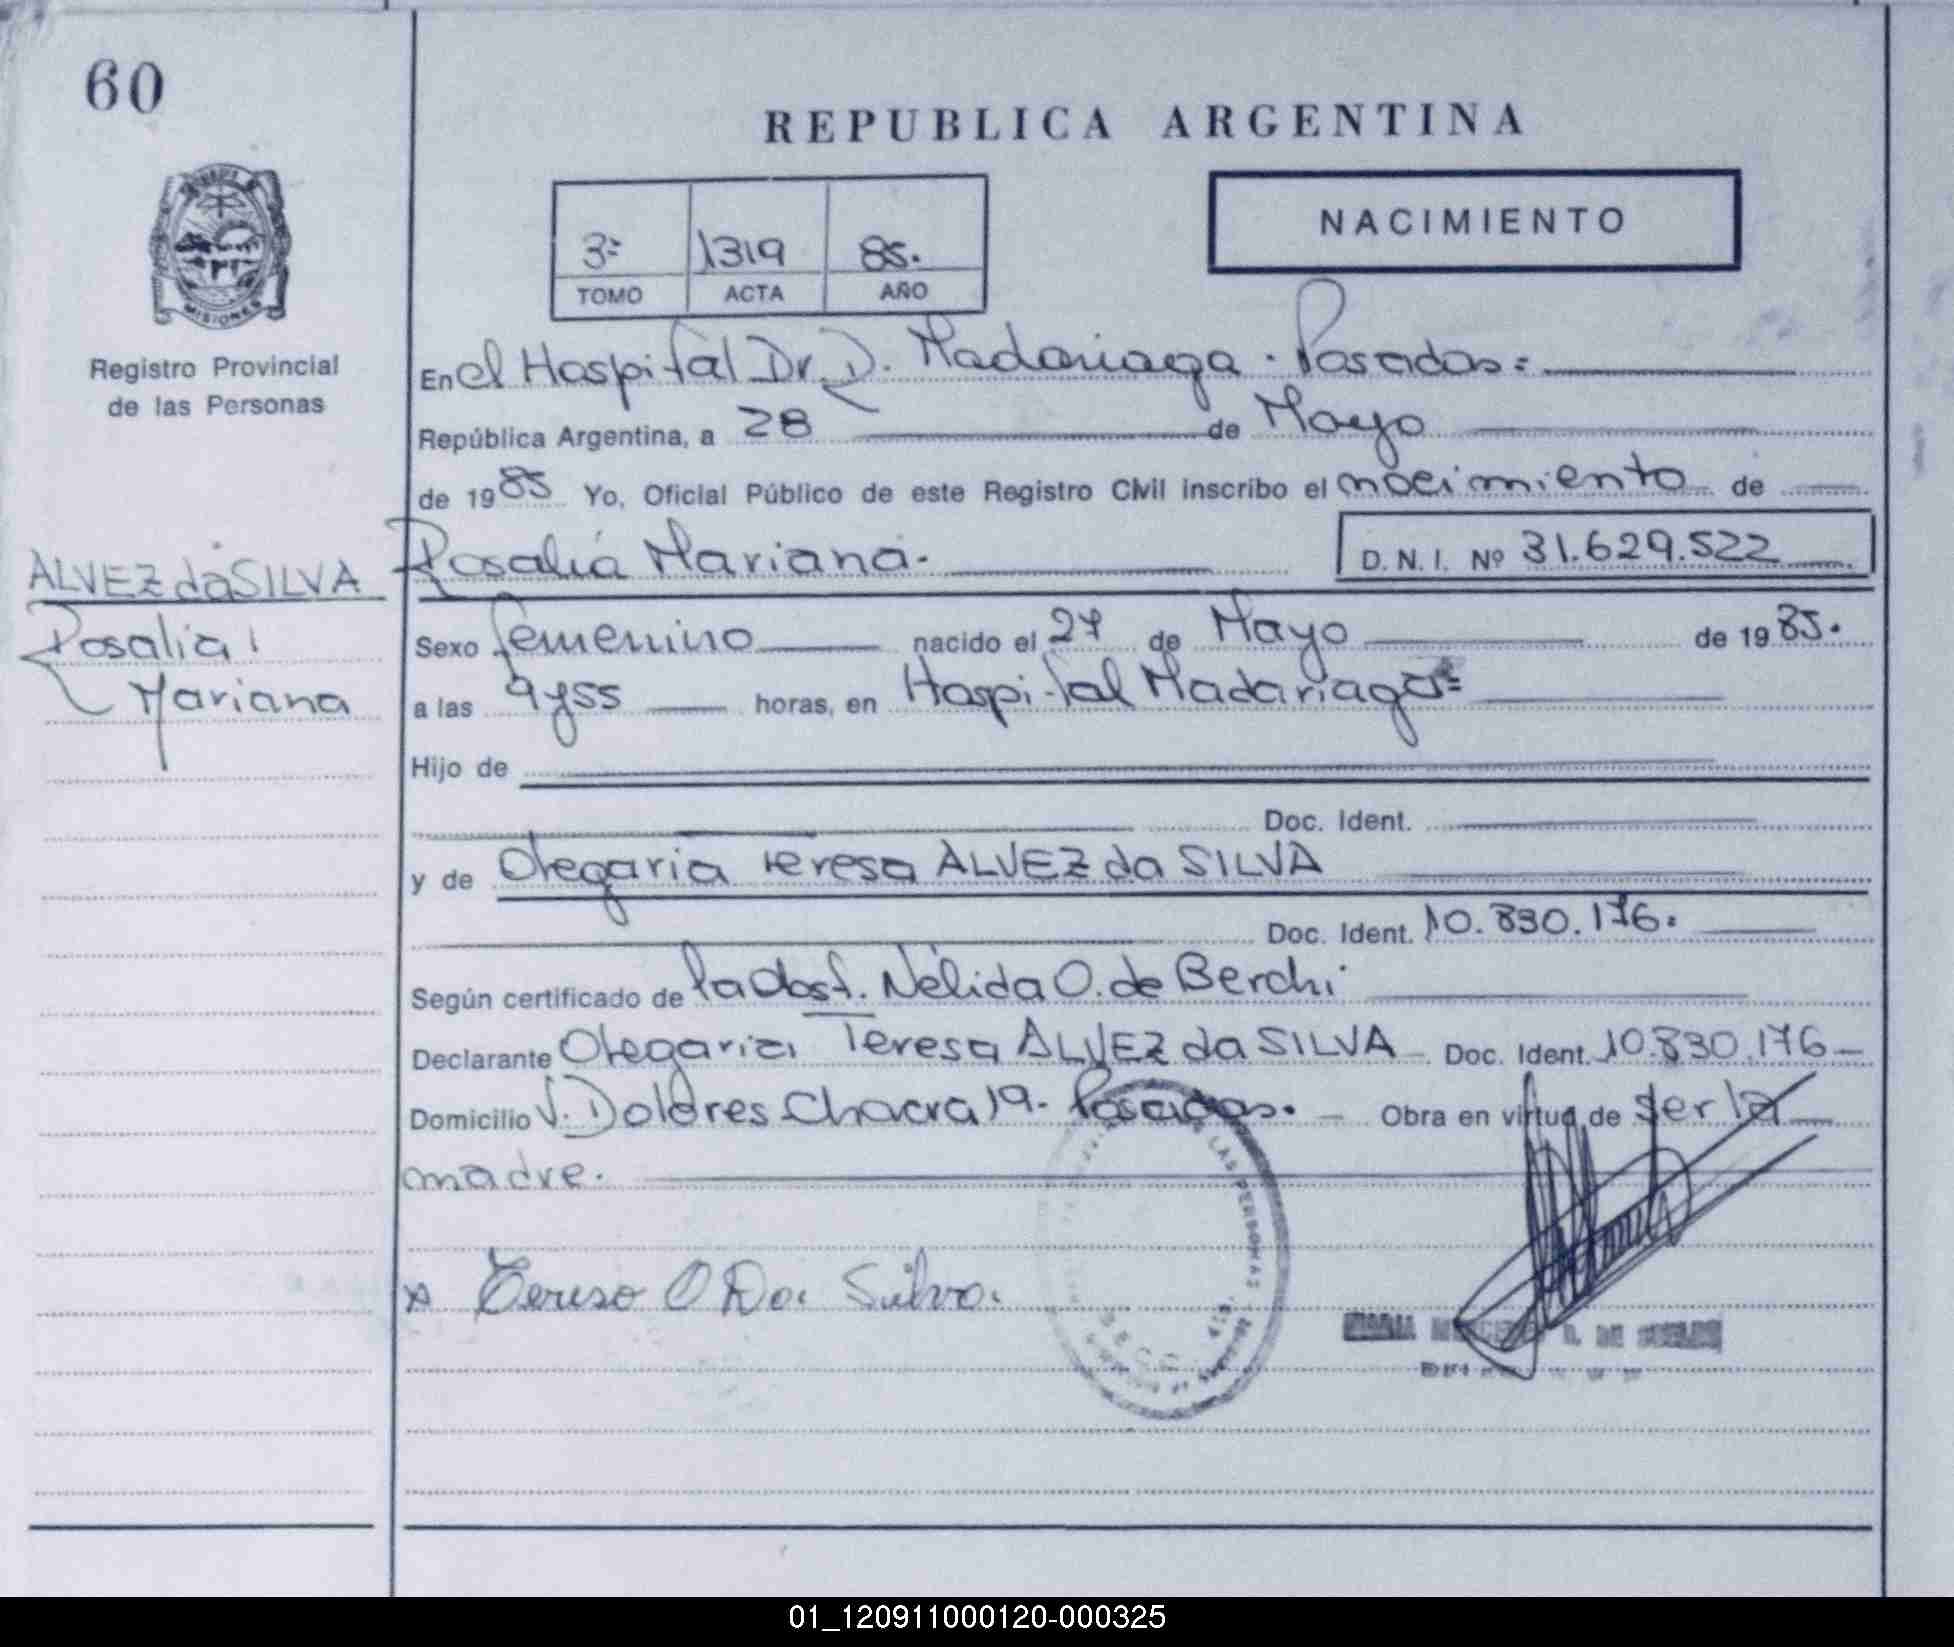 60
REPUBLICA ARGENTINA
NACIMIENTO
3º 1319 85.
TOMO ACTA AÑO
MISIONES
Registro Provincial
de las Personas
En el Hospital Dr. D. Madariaga. Posadas=
República Argentina, a 28 de Mayo
de 1985 Yo, Oficial Público de este Registro Civil inscribo el nacimiento de
Rosalia Mariana. D.N.I. Nº 31.629.522
ALVEZ da SILVA
Rosalia
Mariana
Sexo femenino nacido el 27 de Mayo de 1985.
a las 9y55 horas, en Hospital Madariaga=
Hijo de
Doc. Ident.
y de Olegaria Teresa ALVEZ da SILVA
Doc. Ident. 10.830.176.
Según certificado de la Obst. Nélida O. de Berchi
Declarante Olegaria Teresa ALVEZ da SILVA Doc. Ident. 10.830.176
Domicilio V. Dolores Chacra 19. Posadas. Obra en virtud de ser la
madre.
LAS PERSONAS
x Teresa O Da Silva.
01_120911000120-000325